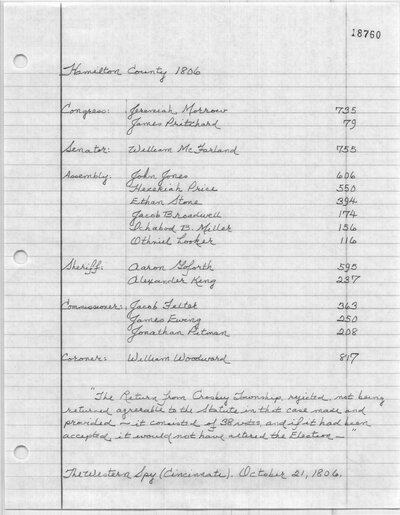 18760
Hamilton County 1806
Congress: Jeremiah Morrow 735
James Pritchard 79
Senator: William McFarland 755
Assembly: John Jones 606
Hezekiah Price 550
Ethan Stone 394
Jacob Broadwell 174
Ichabod B. Miller 136
Othniel Looker 116
Sheriff: Aaron Goforth 595
Alexander Keng 237
Commissioner: Jacob Felter 363
James Ewing 250
Jonathan Pitman 208
Coroner: William Woodward 817
"The Return from Crosby Township, rejected, not being
returned agreeable to the Statute in that case made and
provided — it consisted of 38 votes, and if it had been
accepted, it would not have altered the Election —"
The Western Spy (Cincinnati). October 21, 1806.